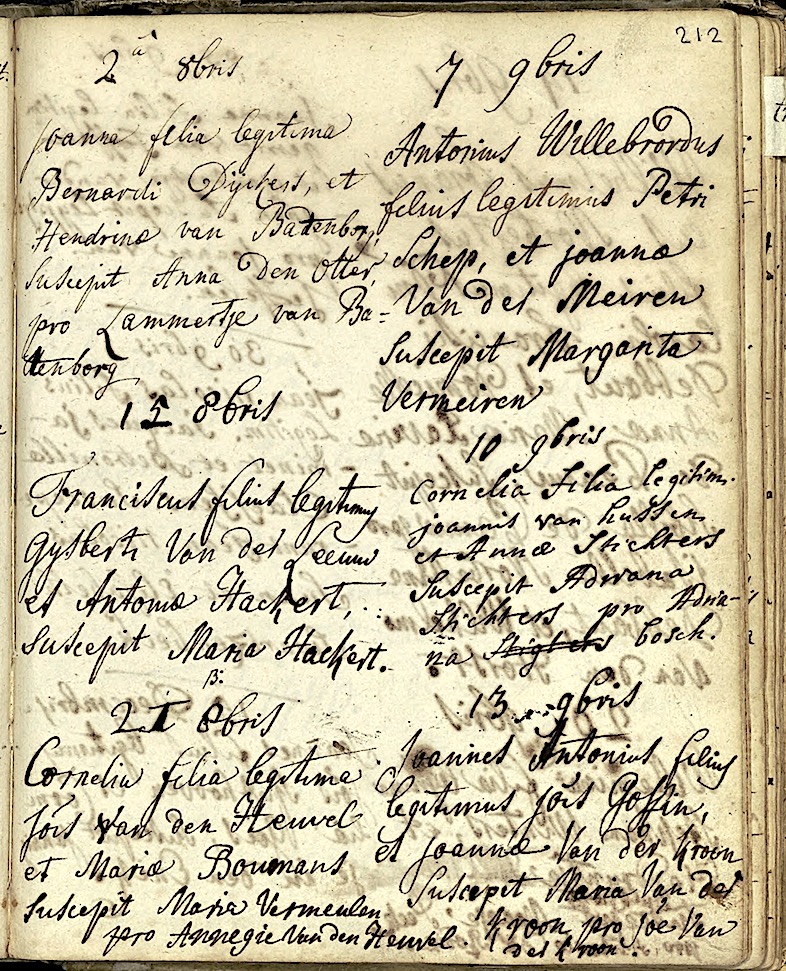 212
2â 8bris
joanna filia legitima
Bernardi Dyckers, et
Hendrinæ van Badenborg,
suscepit Anna Den Otter,
pro Lammertje van Ba=
ttenborg
15 8bris
Franciscus filius legitimus
Gysberti Van der Leeuw
et Antoniæ Hackert,
Suscepit Maria Hackert.
B.
21 8bris
Cornelia filia legitima
Jois van den Heuvel
et Mariæ Boumans
suscepit Maria Vermeulen
pro Annegie Van den Heuvel.
7 9bris
Antonius Willebrordus
filius legitimus Petri
Schep, et joannæ
Van der Meiren
Suscepit Margarita
Vermeiren
10 9bris
Cornelia Filia legitim.
joannis van hussen
et Annæ Stichters
Suscepit Adriana
Stichters pro Adria-
na bosch.
13 9bris
Joannes Antonius filius
legitimus jois Goffin,
et joannæ Van der Kroon
Suscepit Maria Van der
Kroon pro joe Van
der Kroon.